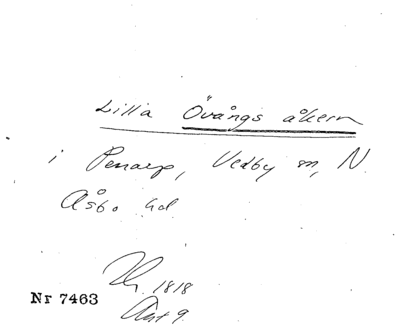 Lilla Övångs åkern
i Penarp, Vedby sn, N.
Åsbo hd.
1818
Akt 9.
Nr 7463